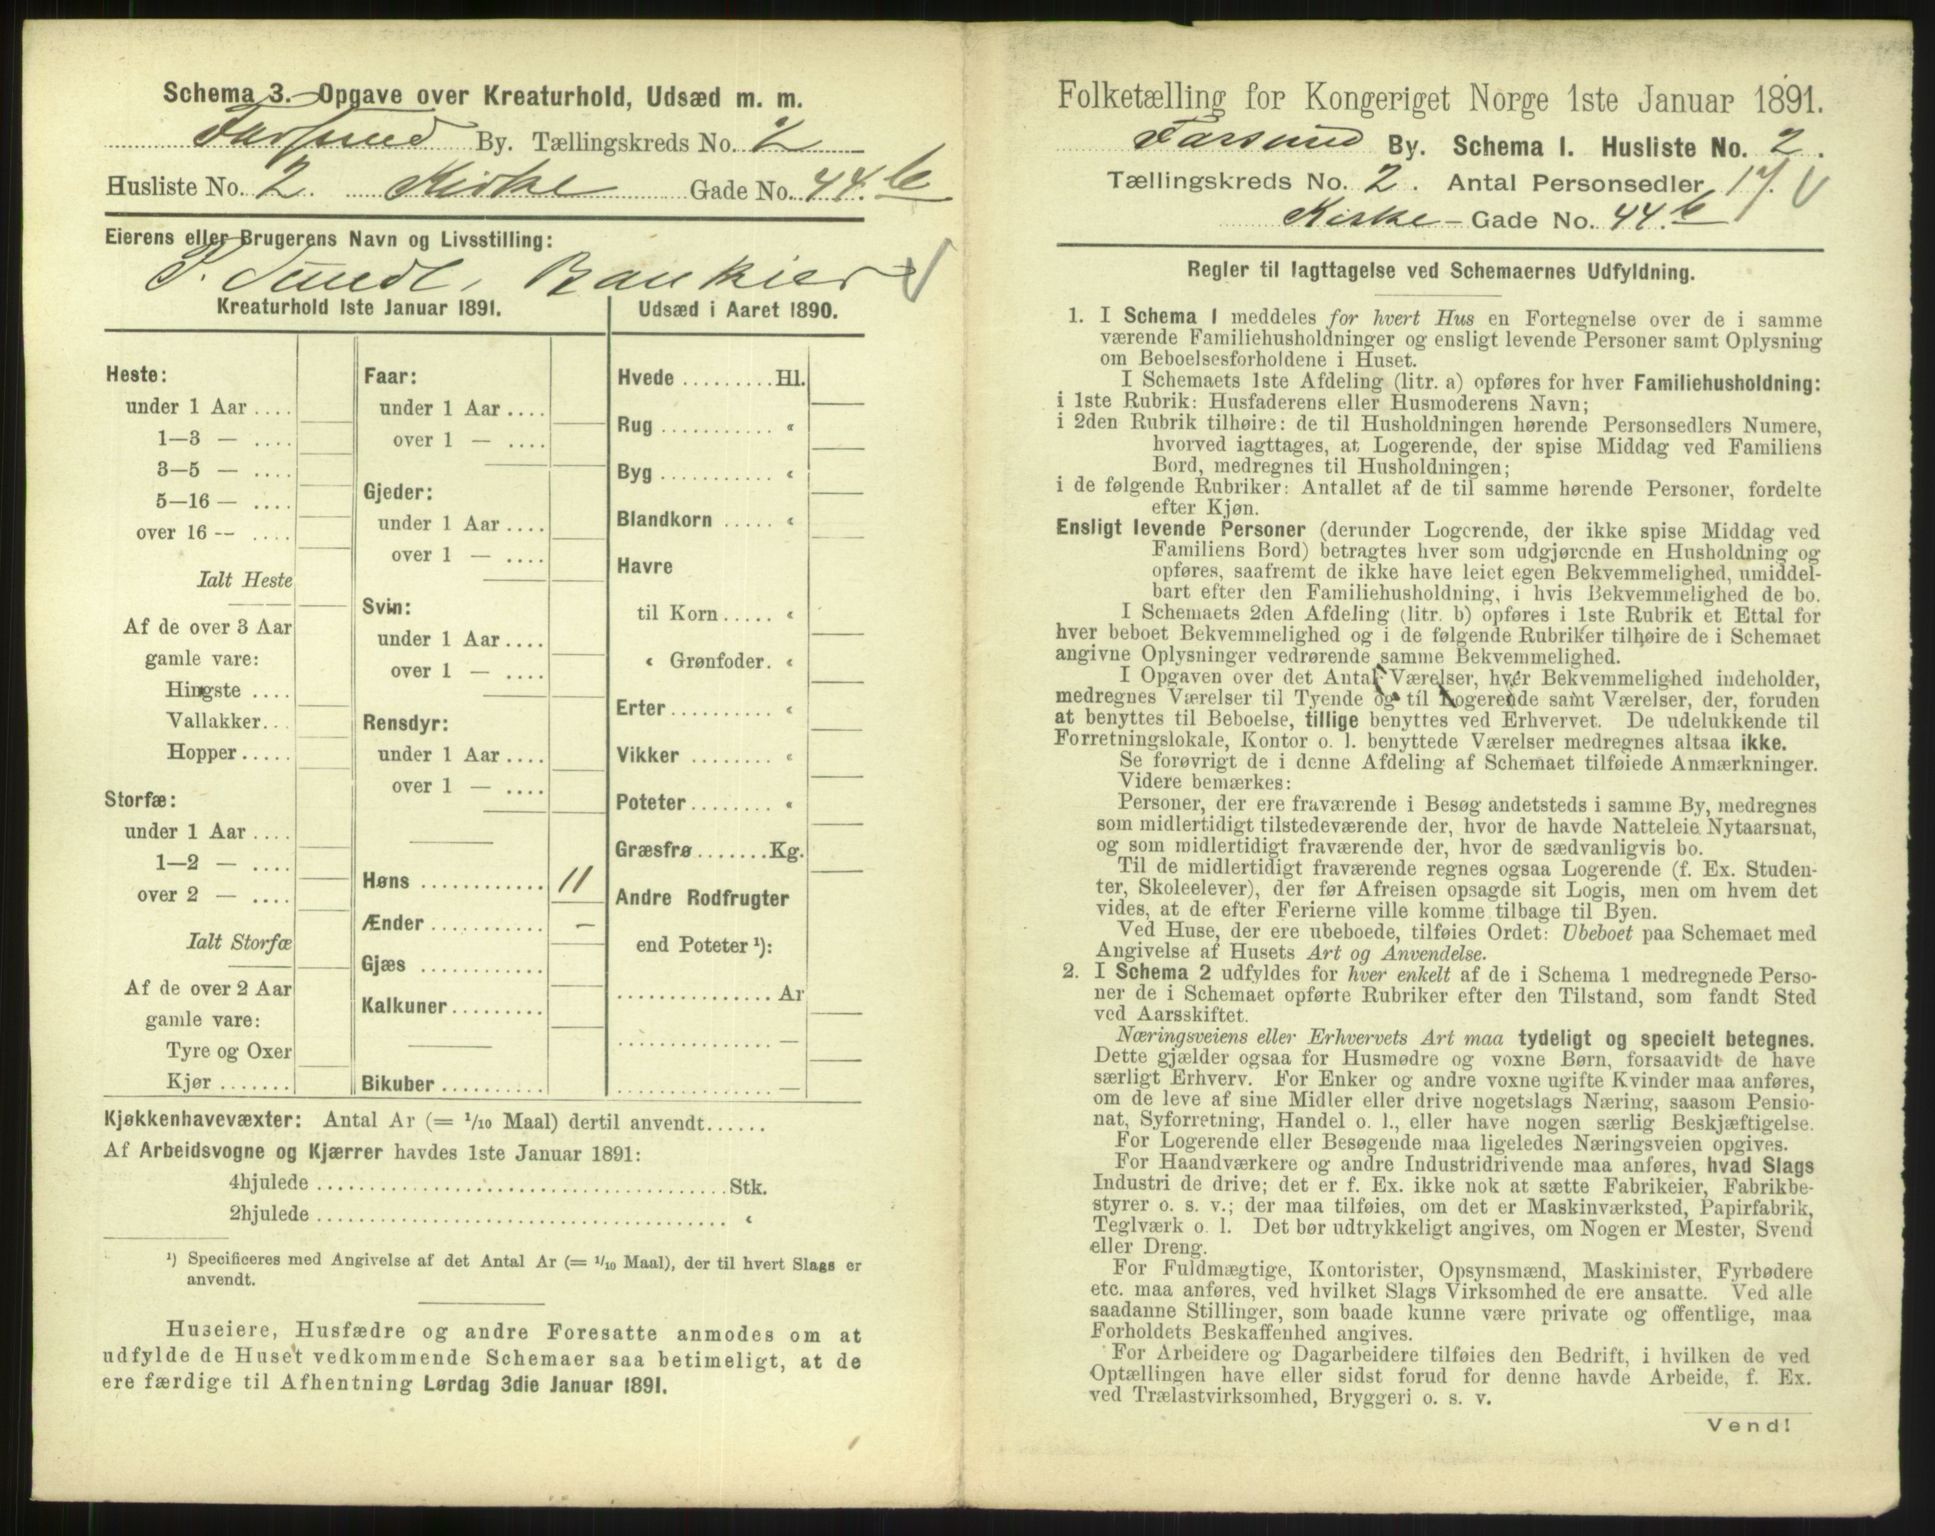 Schema 3. Opgave over Kreaturhold, Udsæd m. m.
Farsund By. Tællingskreds No. 2
Husliste No. 2. Kirke Gade No. 44.b
Eierens eller Brugerens Navn og Livsstilling:
P. Sundt, Bankier
Kreaturhold 1ste Januar 1891.
Heste:
under 1 Aar ....
1—3 — ....
3—5 — ....
5—16 — ....
over 16 — ....
Ialt Heste
Af de over 3 Aar
gamle vare:
Hingste ....
Vallakker...
Hopper.....
Storfæ:
under 1 Aar ....
1—2 — ....
over 2 — ....
Ialt Storfæ
Af de over 2 Aar
gamle vare:
Tyre og Oxer
Kjør .......
Faar:
under 1 Aar ....
over 1 — ....
Gjeder:
under 1 Aar ....
over 1 — ....
Svin:
under 1 Aar ....
over 1 — ....
Rensdyr:
under 1 Aar ....
over 1 — ....
Høns ............ 11
Ænder ........... –
Gjæs ............
Kalkuner.........
Bikuber ..........
Udsæd i Aaret 1890.
Hvede .........Hl.
Rug ........... «
Byg ........... «
Blandkorn ..... «
Havre
til Korn ..... «
« Grønfoder. «
Erter.......... «
Vikker ........ «
Poteter........ «
Græsfrø.......Kg.
Andre Rodfrugter
end Poteter ¹):
............... Ar
............... —
............... —
Kjøkkenhavevæxter: Antal Ar (= 1/10 Maal) dertil anvendt......
Af Arbeidsvogne og Kjærrer havdes 1ste Januar 1891:
4hjulede ........................................Stk.
2hjulede ........................................ «
¹) Specificeres med Angivelse af det Antal Ar (= 1/10 Maal), der til hvert Slags er
anvendt.
Huseiere, Husfædre og andre Foresatte anmodes om at
udfylde de Huset vedkommende Schemaer saa betimeligt, at de
ere færdige til Afhentning Lørdag 3die Januar 1891.
Folketælling for Kongeriget Norge 1ste Januar 1891.
Farsund By. Schema I. Husliste No. 2.
Tællingskreds No. 2. Antal Personsedler 17.
Kirke - Gade No. 44.b
Regler til Iagttagelse ved Schemaernes Udfyldning.
1. I Schema I meddeles for hvert Hus en Fortegnelse over de i samme
værende Familiehusholdninger og ensligt levende Personer samt Oplysning
om Beboelsesforholdene i Huset.
I Schemaets 1ste Afdeling (litr. a) opføres for hver Familiehusholdning:
i 1ste Rubrik: Husfaderens eller Husmoderens Navn;
i 2den Rubrik tilhøire: de til Husholdningen hørende Personsedlers Numere,
hvorved iagttages, at Logerende, der spise Middag ved Familiens
Bord, medregnes til Husholdningen;
i de følgende Rubriker: Antallet af de til samme hørende Personer, fordelte
efter Kjøn.
Ensligt levende Personer (derunder Logerende, der ikke spise Middag ved
Familiens Bord) betragtes hver som udgjørende en Husholdning og
opføres, saafremt de ikke have leiet egen Bekvemmelighed, umiddel-
bart efter den Familiehusholdning, i hvis Bekvemmelighed de bo.
I Schemaets 2den Afdeling (litr. b) opføres i 1ste Rubrik et Ettal for
hver beboet Bekvemmelighed og i de følgende Rubriker tilhøire de i Schemaet
angivne Oplysninger vedrørende samme Bekvemmelighed.
I Opgaven over det Antal Værelser, hver Bekvemmelighed indeholder,
medregnes Værelser til Tyende og til Logerende samt Værelser, der, foruden
at benyttes til Beboelse, tillige benyttes ved Erhvervet. De udelukkende til
Forretningslokale, Kontor o. l. benyttede Værelser medregnes altsaa ikke.
Se forøvrigt de i denne Afdeling af Schemaet tilføiede Anmærkninger.
Videre bemærkes:
Personer, der ere fraværende i Besøg andetsteds i samme By, medregnes
som midlertidigt tilstedeværende der, hvor de havde Natteleie Nytaarsnat,
og som midlertidigt fraværende der, hvor de sædvanligvis bo.
Til de midlertidigt fraværende regnes ogsaa Logerende (f. Ex. Studen-
ter, Skoleelever), der før Afreisen opsagde sit Logis, men om hvem det
vides, at de efter Ferierne ville komme tilbage til Byen.
Ved Huse, der ere ubeboede, tilføies Ordet: Ubeboet paa Schemaet med
Angivelse af Husets Art og Anvendelse.
2. I Schema 2 udfyldes for hver enkelt af de i Schema 1 medregnede Perso-
ner de i Schemaet opførte Rubriker efter den Tilstand, som fandt Sted
ved Aarsskiftet.
Næringsveiens eller Erhvervets Art maa tydeligt og specielt betegnes.
Dette gjælder ogsaa for Husmødre og voxne Børn, forsaavidt de have
særligt Erhverv. For Enker og andre voxne ugifte Kvinder maa anføres,
om de leve af sine Midler eller drive nogetslags Næring, saasom Pensio-
nat, Syforretning, Handel o. l., eller have nogen særlig Beskjæftigelse.
For Logerende eller Besøgende maa ligeledes Næringsveien opgives.
For Haandværkere og andre Industridrivende maa anføres, hvad Slags
Industri de drive; det er f. Ex. ikke nok at sætte Fabrikeier, Fabrikbe-
styrer o. s. v.; der maa tilføies, om det er Maskinværksted, Papirfabrik,
Teglværk o. l. Det bør udtrykkeligt angives, om Nogen er Mester, Svend
eller Dreng.
For Fuldmægtige, Kontorister, Opsynsmænd, Maskinister, Fyrbødere
etc. maa anføres, ved hvilket Slags Virksomhed de ere ansatte. Ved alle
saadanne Stillinger, som baade kunne være private og offentlige, maa
Forholdets Beskaffenhed angives.
For Arbeidere og Dagarbeidere tilføies den Bedrift, i hvilken de ved
Optællingen have eller sidst forud for denne havde Arbeide, f. Ex.
ved Trælastvirksomhed, Bryggeri o. s. v.
Vend!